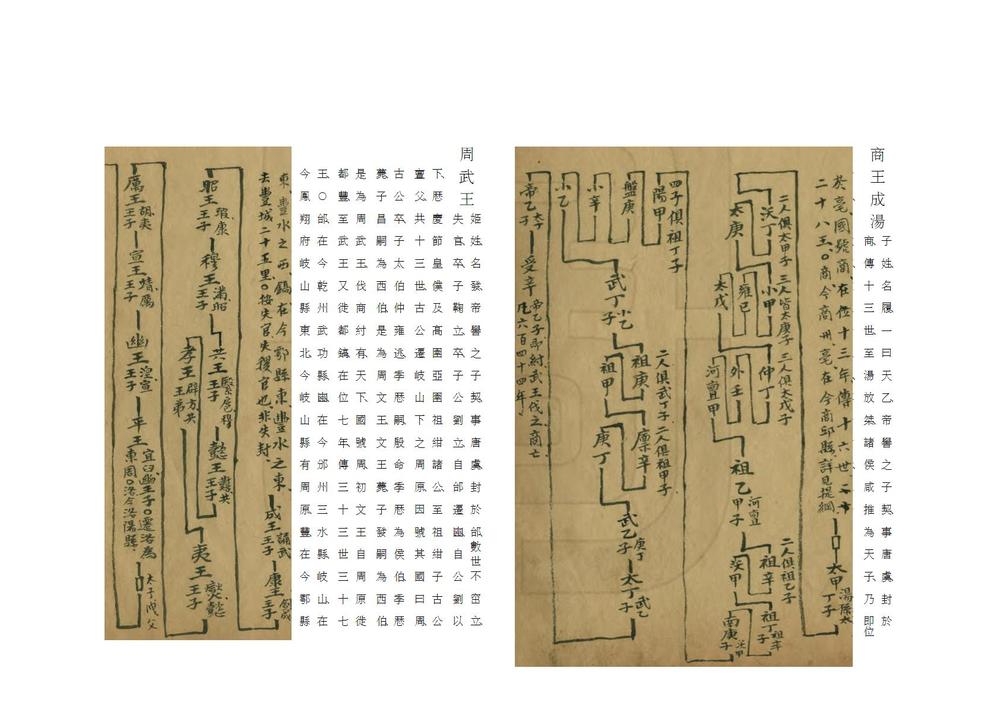 商王成湯
子姓名履一曰天乙帝嚳之子契事唐虞封於
商傳十三世至湯放桀諸侯咸推為天子乃即位
於亳國號商在位十三年傳十六世二十
二十八王○商今商州亳在今商邱縣詳見提綱
太甲
太丁子
沃丁
太庚
二人俱太甲子
小甲
雍己
太戊
三人皆太庚子
仲丁
外壬
河亶甲
三人俱太戊子
祖乙
河亶甲子
祖辛
沃甲
二人俱祖乙子
祖丁
祖辛子
南庚
沃甲子
陽甲
盤庚
小辛
小乙
四子俱祖丁子
武丁
小乙子
祖庚
祖甲
二人俱武丁子
廩辛
庚丁
二人俱祖甲子
武乙
庚丁子
太丁
武乙子
帝乙
太丁子
受辛
帝乙子即紂武王伐之商亡
凡六百四十四年
周武王
姬姓名發帝嚳之子契事唐虞封於邰數世不窋立
失官卒子鞠立卒子公劉立自邰遷豳自公劉以
下歷慶節皇僕及高圉亞圉祖紺公至祖紺子古公
亶父共十三世古公遷岐山下之周原因號其國曰周
古公卒子太伯仲雍逃季歷嗣殷命季歷為侯伯季歷
薨子昌嗣為西伯是為周文王文王薨子發嗣為西伯
是為周武王伐商紂有天下國號周初文王自周原徙
都豐至武王又徙都鎬在位七年傳三十三世三十七
王○邰在今乾州武功縣豳在今邠州三水縣岐山在
今鳳翔府岐山縣東北今岐山縣有周原豐在今鄠縣
東豐水之西鎬在今鄠縣東豐水之東
去豐城二十五里○按失官失稷官也非失封
成王
誦武王子
康王
釗成王子
昭王
瑕康王子
穆王
滿昭王子
共王
繄扈穆王子
懿王
囏共王子
孝王
辟方共王弟
夷王
燮懿王子
厲王
胡夷王子
宣王
靖厲王子
幽王
涅宣王子
平王
宜臼幽王子○遷洛為
東周○洛今洛陽縣
太子洩父